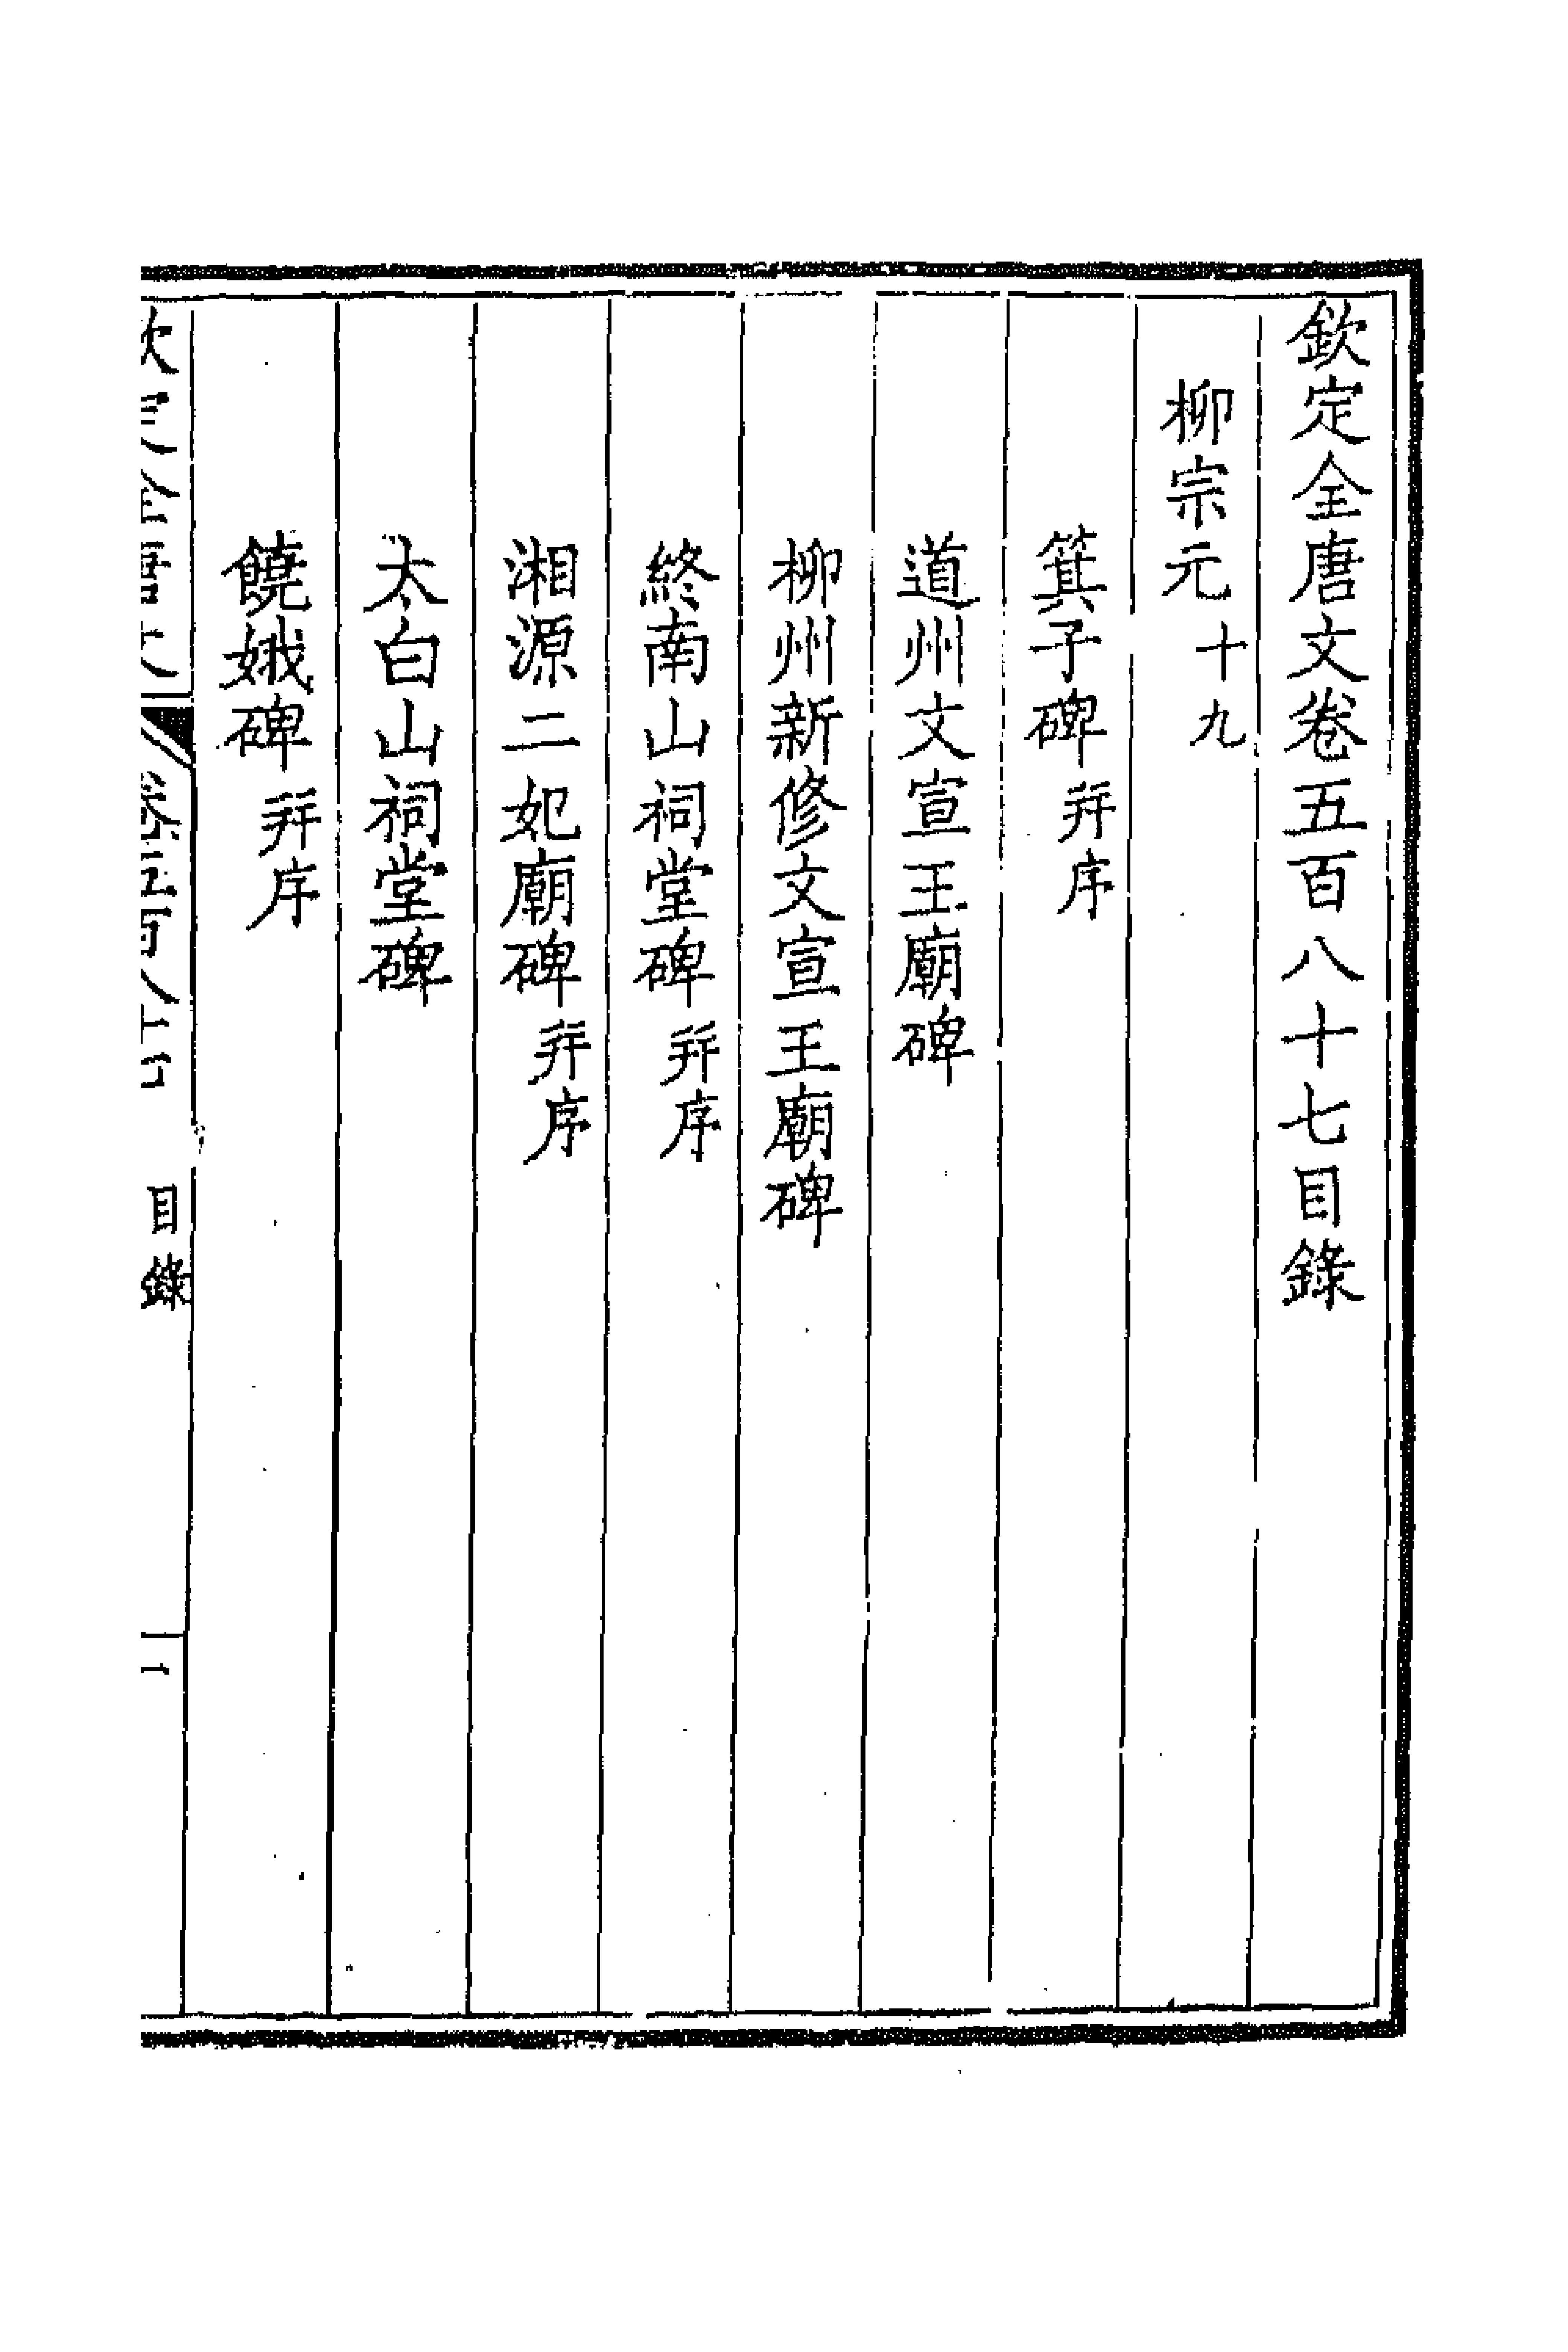 欽定全唐文卷五百八十七目錄
柳宗元十九
箕子碑并序
道州文宣王廟碑
柳州新修文宣王廟碑
終南山祠堂碑并序
湘源二妃廟碑并序
太白山祠堂碑
饒娥碑并序
目錄